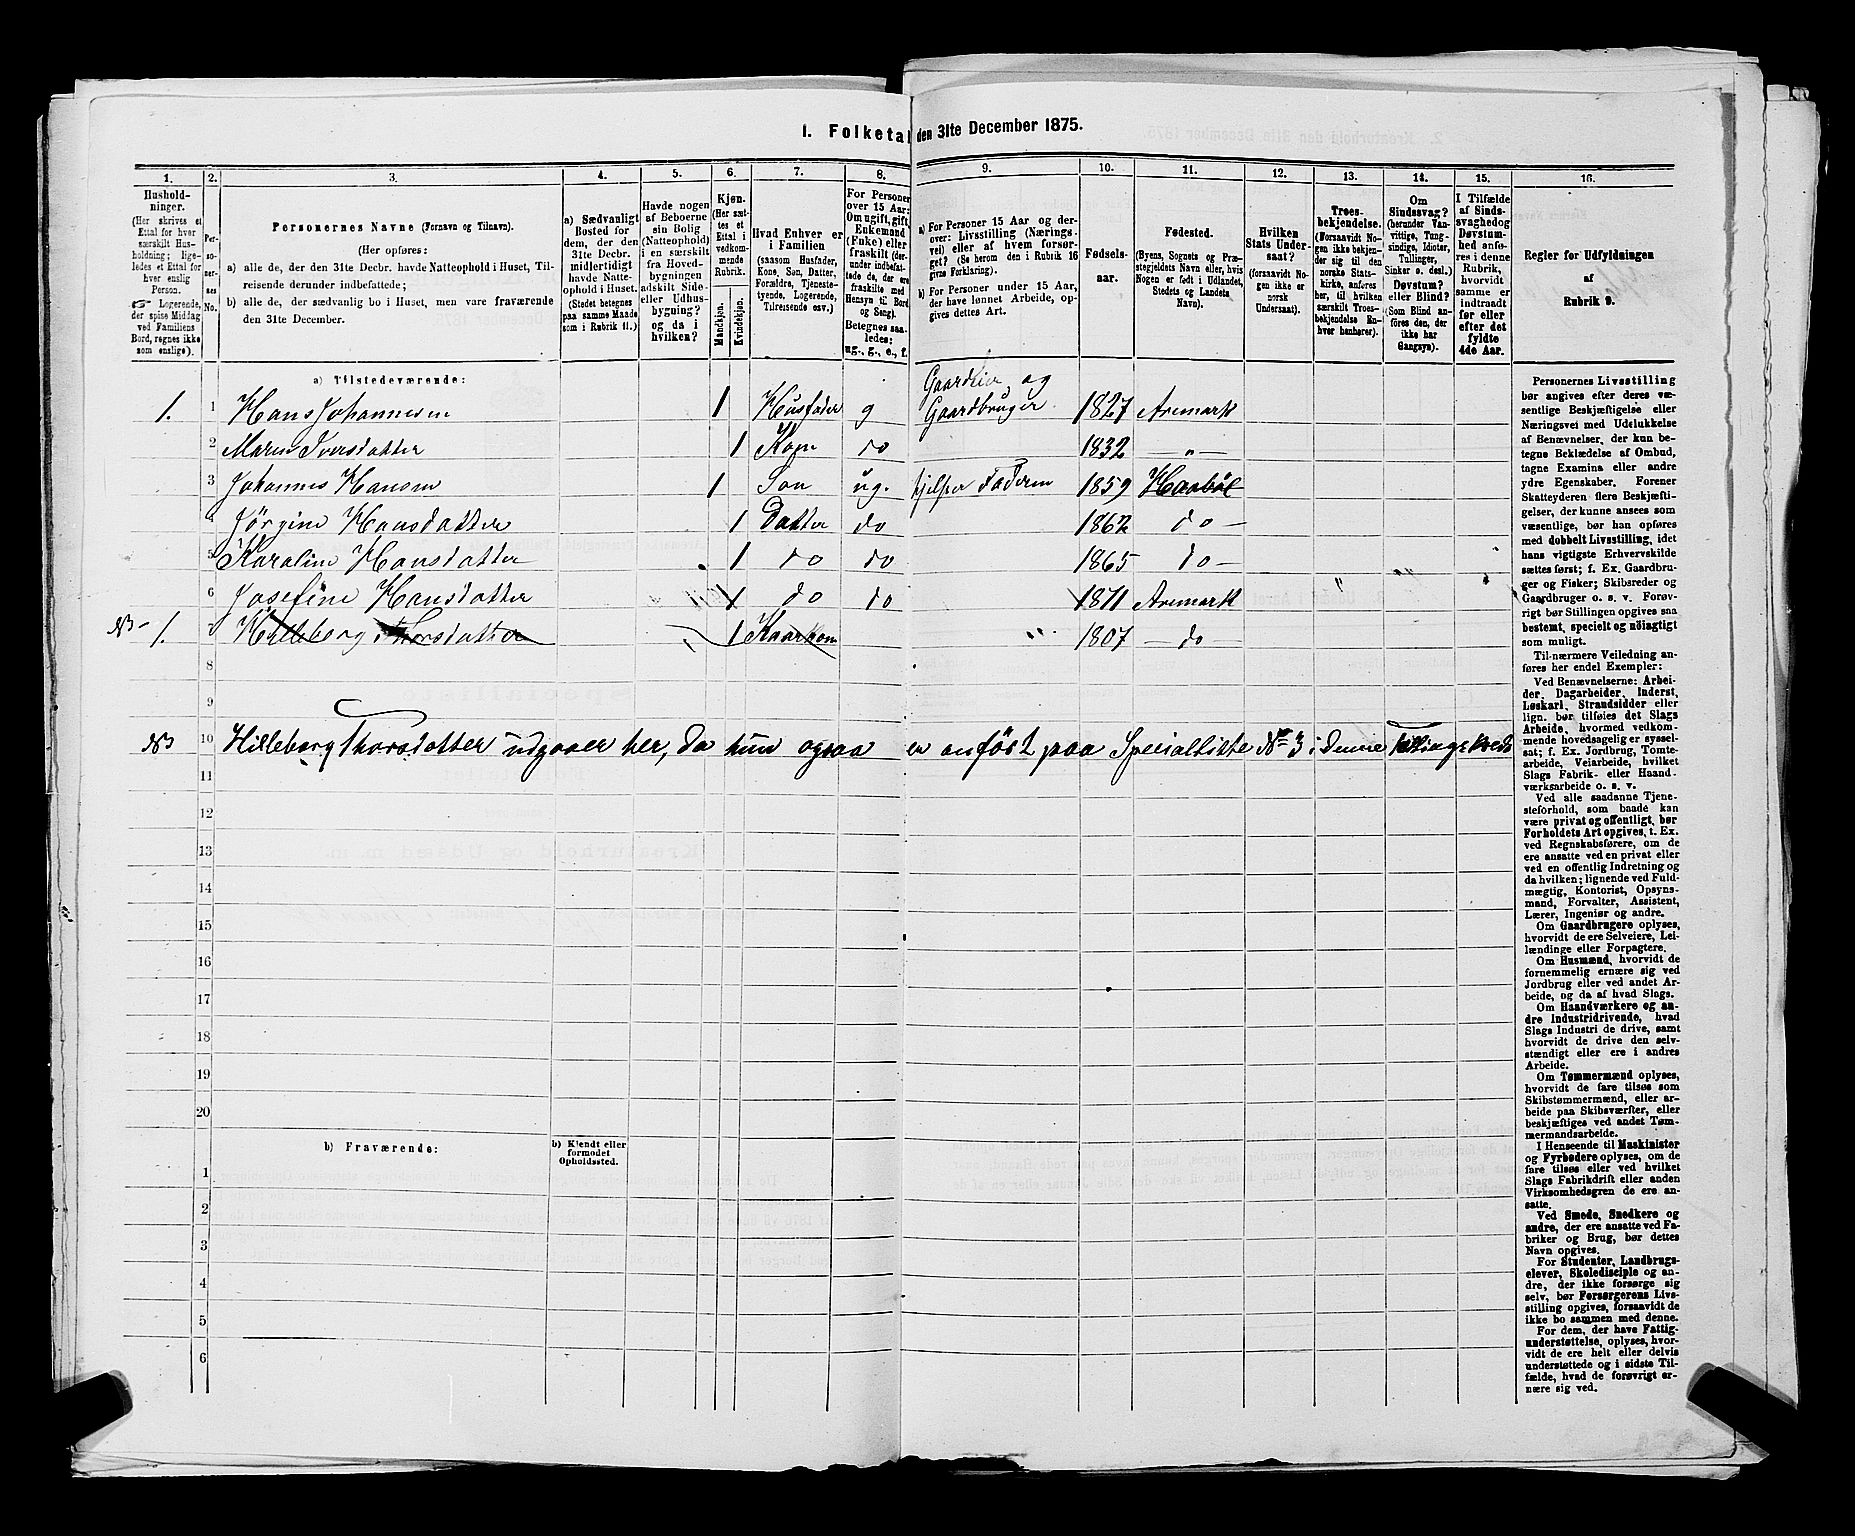 I. Folketal den 31te December 1875.
1. 2. 3. 4. 5. 6. 7. 8. 9. 10. 11. 12. 13. 14. 15. 16.
Hushold-
ninger.
(Her skrives et
Ettal for hver
særskilt Hus-
holdning; lige-
ledes et Ettal for
hver enslig
Person.
☞ Logerende,
der spise Middag
ved Familiens
Bord, regnes ikke
som enslige).
Per-
soner-
nes
No.
Personernes Navne (Fornavn og Tilnavn).
(Her opføres:
a) alle de, der den 31te Decbr. havde Natteophold i Huset, Til-
reisende derunder indbefattede;
b) alle de, der sædvanlig bo i Huset, men vare fraværende
den 31te December.
a) Sædvanligt
Bosted for
dem, der den
31te Decbr.
midlertidigt
havde Natte-
ophold i Huset.
(Stedet betegnes
paa samme Maade
som i Rubrik 11.)
Havde nogen
af Beboerne
sin Bolig
(Natteophold)
i en særskilt
fra Hoved-
bygningen
adskilt Side-
eller Udhus-
bygning?
og da i
hvilken?
Kjøn.
(Her sæt-
tes et
Ettal i
vedkom-
mende
Rubrik.
Mandkjøn.
Kvindekjøn.
Hvad Enhver er
i Familien
(saasom Husfader,
Kone, Søn, Datter,
Forældre, Tjeneste-
tyende, Logerende,
Tilreisende osv.)
For Personer
over 15 Aar:
Om ugift, gift,
Enkemand
(Enke) eller
fraskilt (der-
under indbefat-
tede de, der ere
fraskilte med
Hensyn til Bord
og Seng).
Betegnes saa-
ledes:
ug., g., e., f.
a) For Personer 15 Aar og der-
over: Livsstilling (Nærings-
vei) eller af hvem forsør-
get? (Se herom den i Rubrik 16
givne Forklaring).
b) For Personer under 15 Aar,
der have lønnet Arbeide, op-
gives dettes Art.
Fødsels-
aar.
Fødested.
(Byens, Sognets og Præ-
stegjeldets Navn eller, hvis
Nogen er født i Udlandet,
Stedets og Landets
Navn).
Hvilken
Stats Under-
saat?
(forsaavidt No-
gen ikke er
norsk
Undersaat).
Troes-
bekjendelse.
(Forsaavidt No-
gen ikke bekjen-
der sig til den
norske Stats-
kirke, anføres
her, til hvilken
særskilt Troes-
bekjendelse En-
hver henhører).
Om
Sindssvag?
(herunder Van-
vittige, Tung-
sindige, Idioter,
Tullinger,
Sinker o. desl.)
Døvstum?
eller Blind?
(Som Blind an-
føres den, der
ikke har
Gangsyn).
I Tilfælde
af Sinds-
svaghed og
Døvstum-
hed anfø-
res i denne
Rubrik,
hvorvidt
samme er
indtraadt
før eller
efter det
fyldte
4de Aar.
Regler for Udfyldningen
af
Rubrik 9.
a) Tilstedeværende:
1. 1 Hans Johannesen 1 Husfader g Gaardeier og Gaardbruger 1827 Aremark
2 Maren Iversdatter 1 Kone do 1832 — „ —
3 Johannes Hansen 1 Søn ug. hjelper Faderen 1859
4 Jörgine Hansdatter 1 Datter do 1862 do —
5 Karoline Hansdatter 1 do do 1865 do —
6 Josefine Hansdatter 1 do do 1871 Aremark
NB — 1. 7 Hilleborg Thorsdatter 1 1807 — do
8
9
NB 10 Hilleborg Thorsdatter udgaaer her, da hun ogsaa er anført paa Specialliste No 3 i denne Tællingskreds
11
12
13
14
15
16
17
18
19
20
b) Fraværende:
b) Kjendt eller
formodet
Opholdssted.
1
2
3
4
5
6
Personernes Livsstilling
bør angives efter deres væ-
sentlige Beskjæftigelse eller
Næringsvei med Udelukkelse
af Benævnelser, der kun be-
tegne Beklædelse af Ombud,
tagne Examina eller andre
ydre Egenskaber. Forener
Skatteyderen flere Beskjæfti-
gelser, der kunne ansees som
væsentlige, bør han opføres
med dobbelt Livsstilling, idet
hans vigtigste Erhvervskilde
sættes først; f. Ex. Gaardbru-
ger og Fisker; Skibsreder og
Gaardbruger o. s. v. Forøv-
rigt bør Stillingen opgives saa
bestemt, specielt og nøiagtigt
som muligt.
Til nærmere Veiledning an-
føres her endel Exempler:
Ved Benævnelserne: Arbei-
der, Dagarbeider, Inderst,
Løskarl, Strandsidder eller
lign. bør tilføies det Slags
Arbeide, hvormed vedkom-
mende hovedsagelig er syssel-
sat; f. Ex. Jordbrug, Tomte-
arbeide, Veiarbeide, hvilket
Slags Fabrik- eller Haand-
værksarbeide o. s. v.
Ved alle saadanne Tjene-
steforhold, som baade kan
være privat og offentligt, bør
Forholdets Art opgives, t. Ex.
ved Regnskabsførere, om de
ere ansatte ved en privat eller
ved en offentlig Indretning og
da hvilken; lignende ved Fuld-
mægtig, Kontorist, Opsyns-
mand, Forvalter, Assistent,
Lærer, Ingeniør og andre.
Om Gaardbrugere oplyses,
hvorvidt de ere Selveiere, Lei-
lændinge eller Forpagtere.
Om Husmænd, hvorvidt de
fornemmelig ernære sig ved
Jordbrug eller ved andet Ar-
beide, og da af hvad Slags.
Om Haandværkere og an-
dre Industridrivende, hvad
Slags Industri de drive, samt
hvorvidt de drive den selv-
stændigt eller ere i andres
Arbeide.
Om Tømmermænd oplyses,
hvorvidt de fare tilsøs som
Skibstømmermænd, eller ar-
beide paa Skibsværfter, eller
beskjæftiges ved andet Tøm-
mermandsarbeide.
I Henseende til Maskinister
og Fyrbødere oplyses, om de
fare tilsøs eller ved hvilket
Slags Fabrikdrift eller anden
Virksomhedsgren de ere an-
satte.
Ved Smede, Snedkere og
andre, der ere ansatte ved Fa-
briker og Brug, bør dettes
Navn opgives.
For Studenter, Landbrugs-
elever, Skoledisciple og an-
dre, der ikke forsørge sig
selv, bør Forsørgerens Livs-
stilling opgives, forsaavidt de
ikke bo sammen med denne.
For dem, der have Fattig-
understøttelse, oplyses, hvor-
vidt de ere helt eller delvis
understøttede og i sidste Til-
fælde, hvad de forøvrigt er-
nære sig ved.